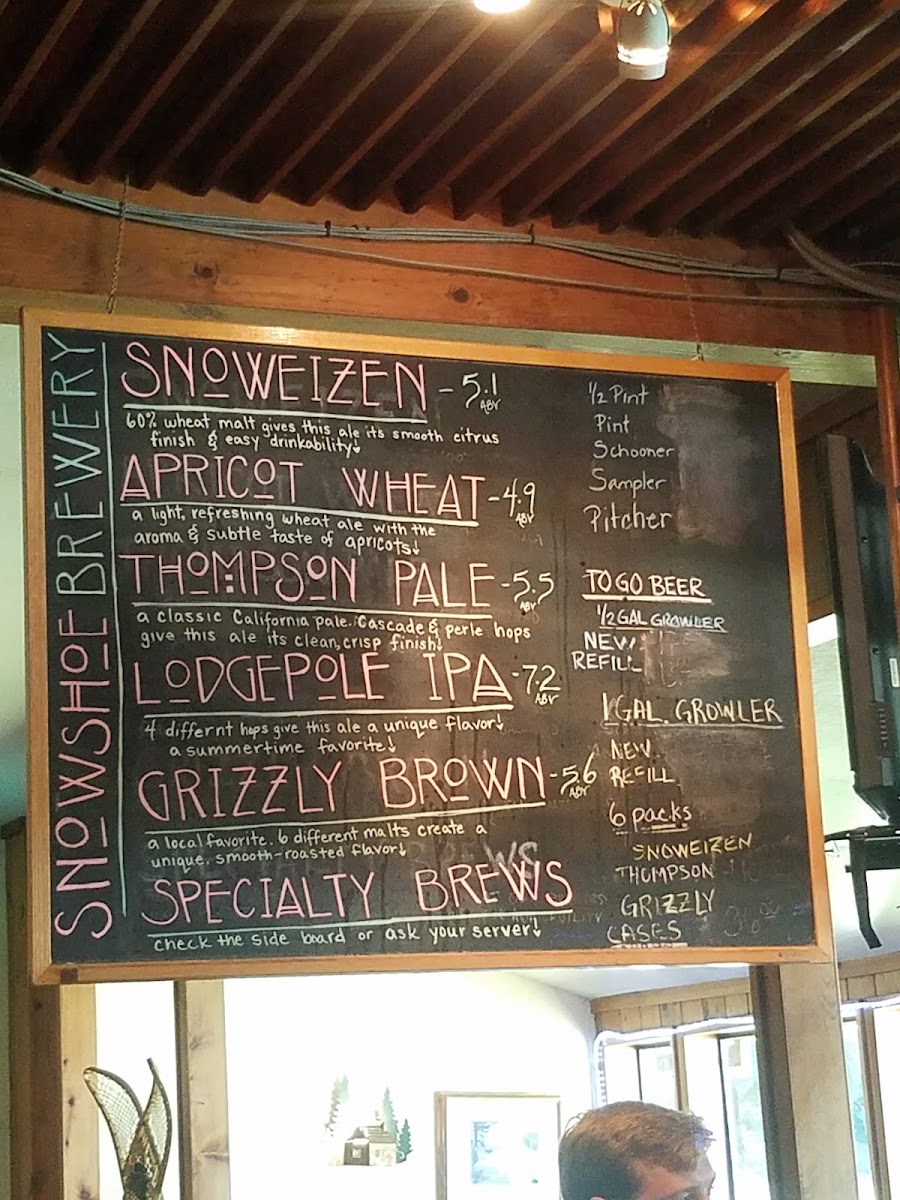 SNOWSHOE BREWERY
SNOWEIZEN - 5.1 ABV
60% wheat malt gives this ale its smooth citrus
finish & easy drinkability
APRICOT WHEAT - 4.9 ABV
a light, refreshing wheat ale with the
aroma & subtle taste of apricots!
THOMPSON PALE - 5.5 ABV
a classic California pale. Cascade & perle hops
give this ale its clean, crisp finish!
LODGEPOLE IPA - 7.2 ABV
4 differnt hops give this ale a unique flavor!
a summertime favorite!
GRIZZLY BROWN - 5.6 ABV
a local favorite. 6 different malts create a
unique, smooth-roasted flavor!
SPECIALTY BREWS
check the side board or ask your server!
1/2 Pint
Pint
Schooner
Sampler
Pitcher
TO GO BEER
1/2 GAL GROWLER
NEW
REFILL
1 GAL. GROWLER
NEW
REFILL
6 packs
SNOWEIZEN
THOMPSON
GRIZZLY
CASES